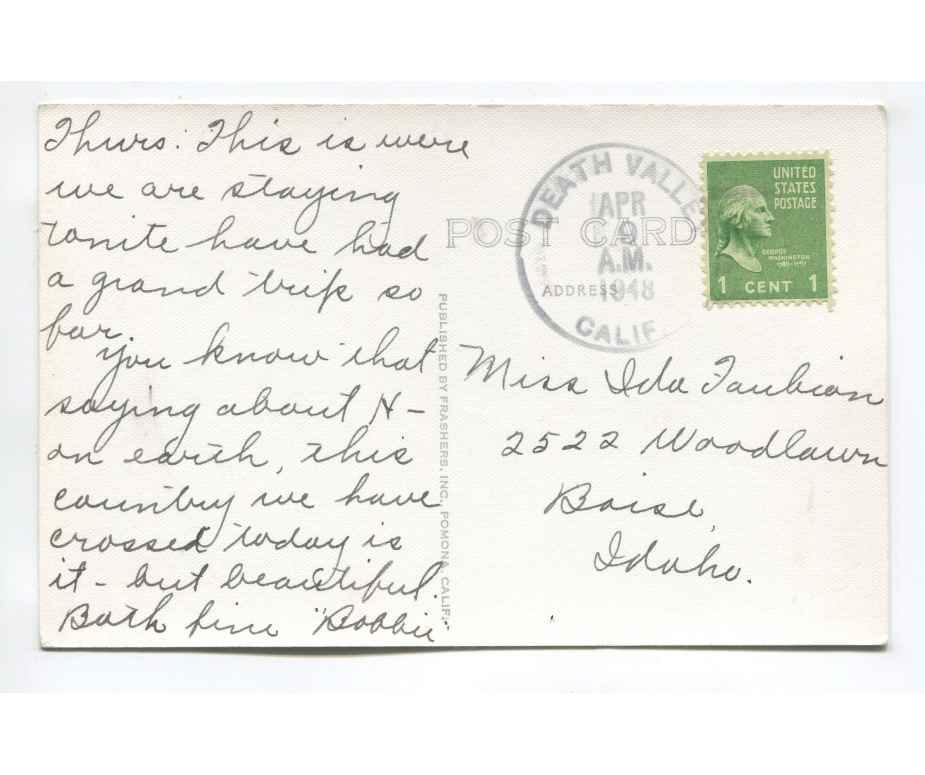 Thurs. This is were
we are staying
tonite have had
a grand trip so
far.
You know that
saying about H-
on earth, this
country we have
crossed today is
it - but beautiful.
Both fine "Bobbie"
PUBLISHED BY FRASHERS, INC., POMONA, CALIF.
POST CARD
ADDRESS
DEATH VALLE
APR
9
A.M.
1948
CALIF.
UNITED
STATES
POSTAGE
GEORGE
WASHINGTON
1789-1797
1 CENT 1
Miss Ida Faubion
2522 Woodlawn
Boise,
Idaho.